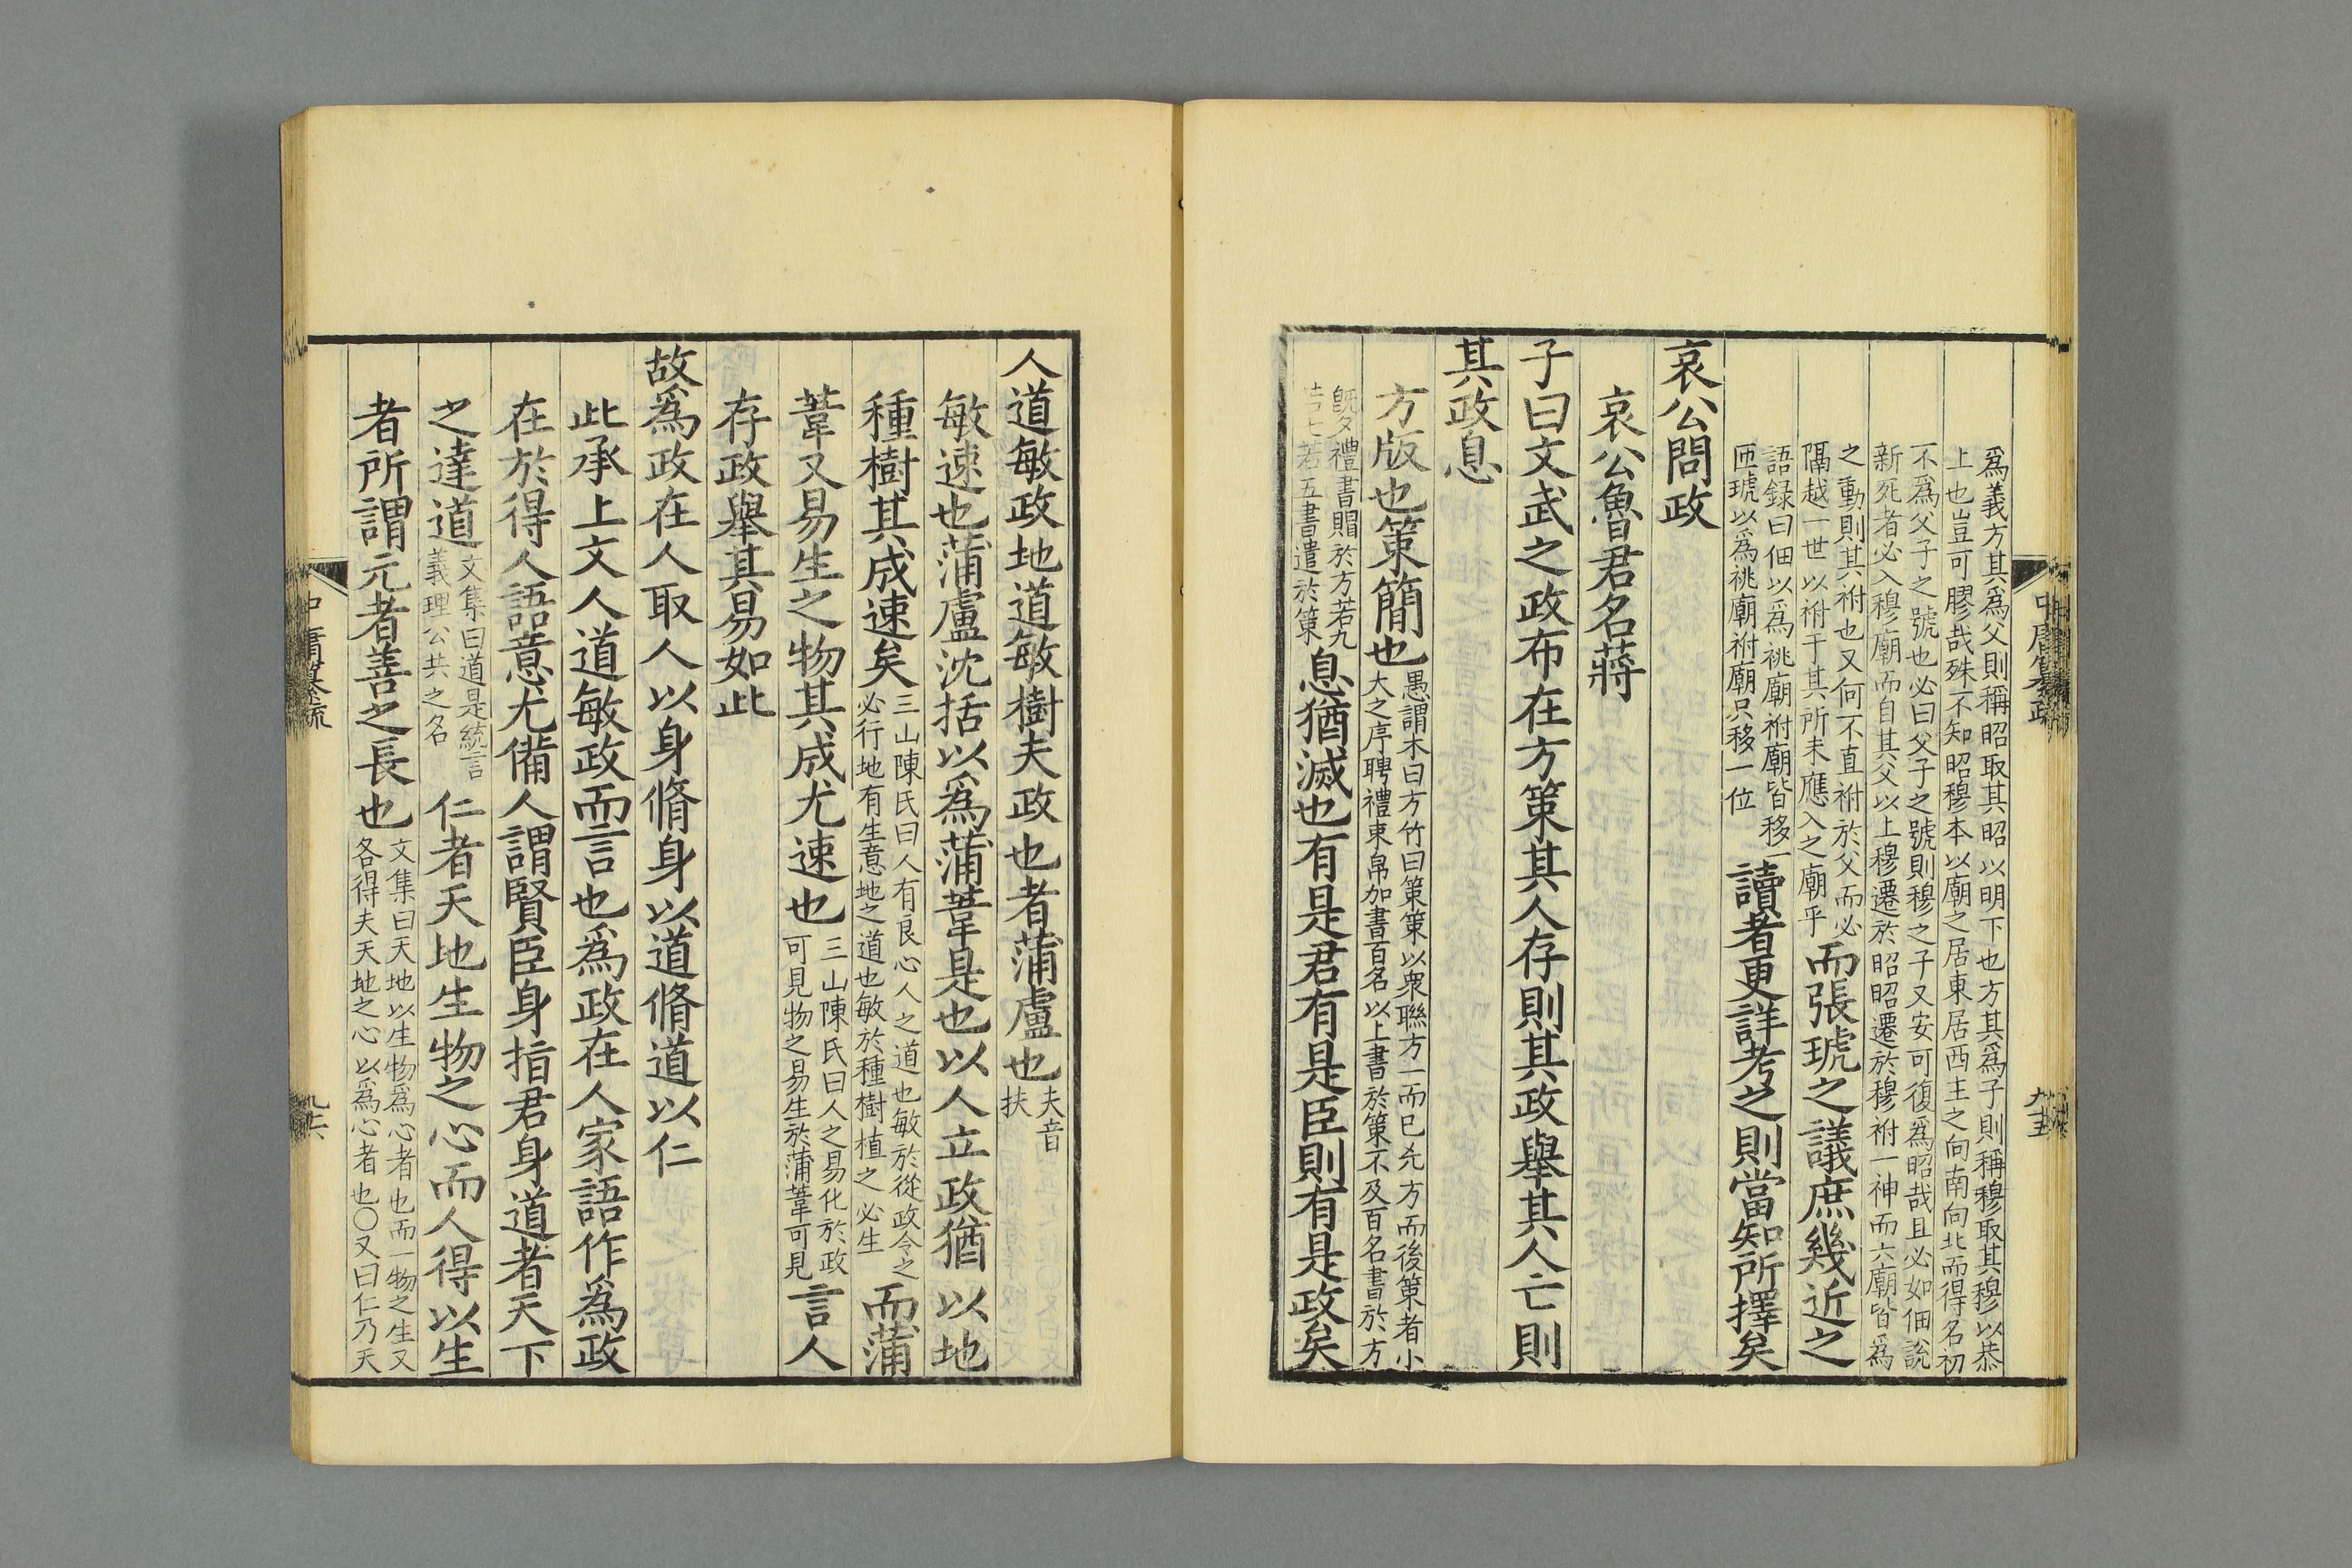 爲義方其爲父則稱昭取其昭以明下也方其爲子則稱穆取其穆以恭
上也豈可膠哉殊不知昭穆本以廟之居東居西主之向南向北而得名初
不爲父子之號也必曰父子之號則穆之子又安可復爲昭哉且必如佃說
新死者必入穆廟而自其父以上穆遷於昭昭遷於穆祔一神而六廟皆爲
之動則其祔也又何不直祔於父而必
隔越一世以祔于其所未應入之廟乎
而張琥之議庶幾近之
語録曰佃以爲祧廟祔廟皆移一
匝琥以爲祧廟祔廟只移一位
讀者更詳考之則當知所擇矣
哀公問政
哀公魯君名蔣
子曰文武之政布在方策其人存則其政舉其人亡則
其政息
方版也策簡也
愚謂木曰方竹曰策策以衆聯方一而已先方而後策者小
大之序聘禮束帛加書百名以上書於策不及百名書於方
旣夕禮書賵於方若九
若七若五書遣於策
息猶滅也有是君有是臣則有是政矣
中庸纂疏
九十五
人道敏政地道敏樹夫政也者蒲盧也
夫音
扶
敏速也蒲盧沈括以爲蒲葦是也以人立政猶以地
種樹其成速矣
三山陳氏曰人有良心人之道也敏於從政令之
必行地有生意地之道也敏於種樹植之必生
而蒲
葦又易生之物其成尤速也
三山陳氏曰人之易化於政
可見物之易生於蒲葦可見
言人
存政舉其易如此
故爲政在人取人以身脩身以道脩道以仁
此承上文人道敏政而言也爲政在人家語作爲政
在於得人語意尤備人謂賢臣身指君身道者天下
之達道
文集曰道是統言
義理公共之名
仁者天地生物之心而人得以生
者所謂元者善之長也
文集曰天地以生物爲心者也而一物之生又
各得夫天地之心以爲心者也〇又曰仁乃天
中庸纂疏
九十六